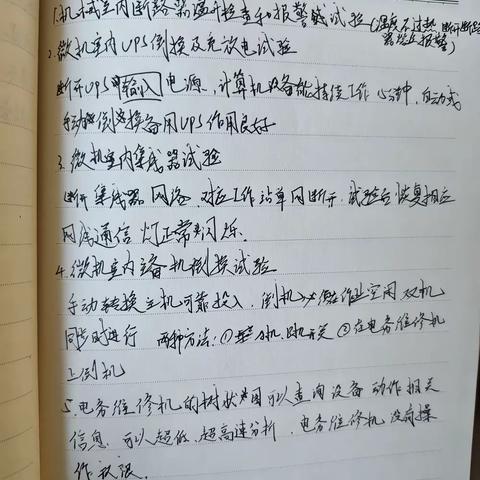 1.机械室内断路器温升检查和报警试验(温度不过热 断开断路器发生报警)
2.微机室内UPS倒换及充放电试验
断开UPS输入电源,计算机设备能持续工作15分钟,自动或
手动倒换备用UPS作用良好
3.微机室内集线器试验
断开集线器网络,对应工作站单网断开,试验后恢复相应
网线通信灯正常闪烁.
4.微机室内主备机倒换试验
手动转换主机可靠投入,倒机必须在作业空闲双机
同步时进行 两种方法:①开关 ②在电务维修机
上倒机
5.电务维修机的树状图可以查询设备动作相关
信息,可以超低、超高速分析,电务维修机没有操
作权限.